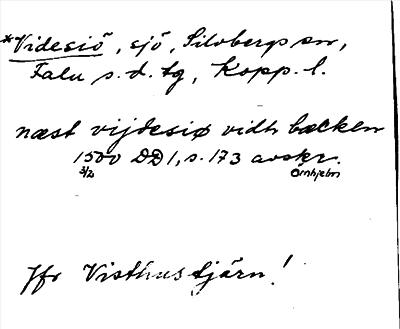 *Videsiö, sjö, Silvbergs sn,
Falu s. d. tg, Kopp. l.
næst vijdesiø vidh bæcken
1500 DD 1, s. 173 avskr.
3/2 Örnhjelm
Jfr Visthustjärn!